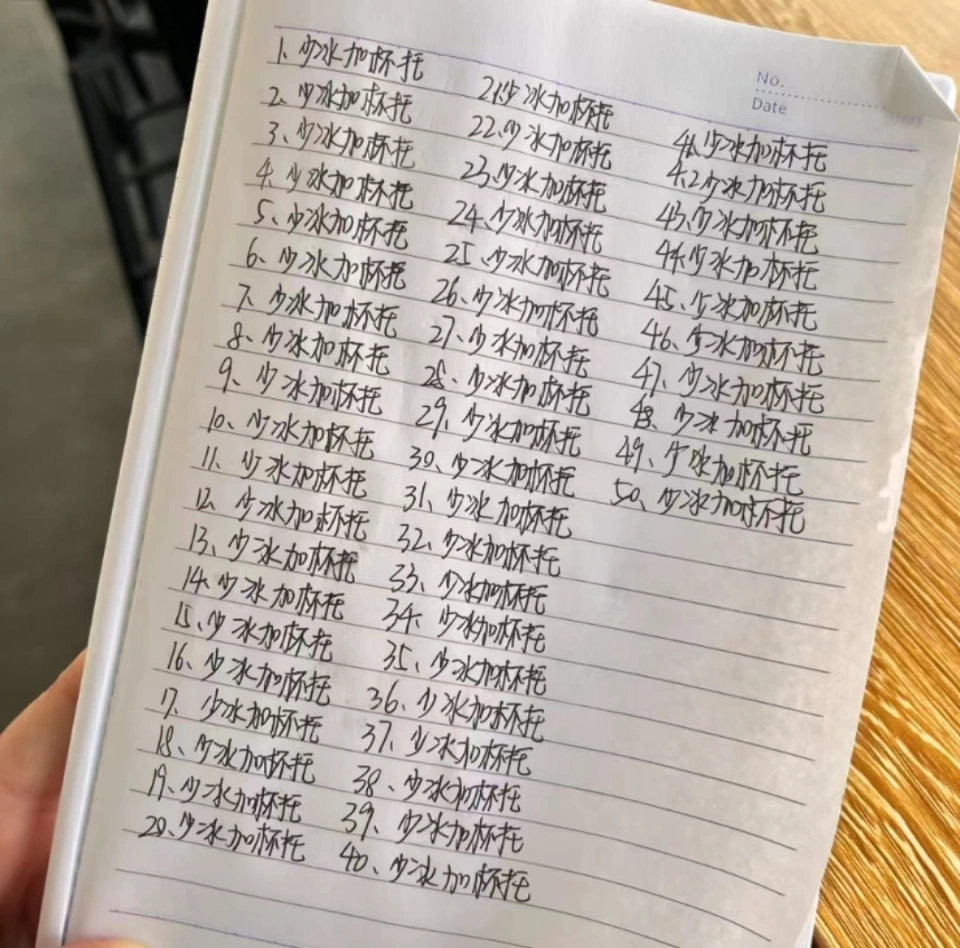 No.
Date
1、少冰加杯托
2、少冰加杯托
3、少冰加杯托
4、少冰加杯托
5、少冰加杯托
6、少冰加杯托
7、少冰加杯托
8、少冰加杯托
9、少冰加杯托
10、少冰加杯托
11、少冰加杯托
12、少冰加杯托
13、少冰加杯托
14、少冰加杯托
15、少冰加杯托
16、少冰加杯托
17、少冰加杯托
18、少冰加杯托
19、少冰加杯托
20、少冰加杯托
21、少冰加杯托
22、少冰加杯托
23、少冰加杯托
24、少冰加杯托
25、少冰加杯托
26、少冰加杯托
27、少冰加杯托
28、少冰加杯托
29、少冰加杯托
30、少冰加杯托
31、少冰加杯托
32、少冰加杯托
33、少冰加杯托
34、少冰加杯托
35、少冰加杯托
36、少冰加杯托
37、少冰加杯托
38、少冰加杯托
39、少冰加杯托
40、少冰加杯托
41、少冰加杯托
42少冰加杯托
43、少冰加杯托
44、少冰加杯托
45、少冰加杯托
46、少冰加杯托
47、少冰加杯托
48、少冰加杯托
49、少冰加杯托
50、少冰加杯托